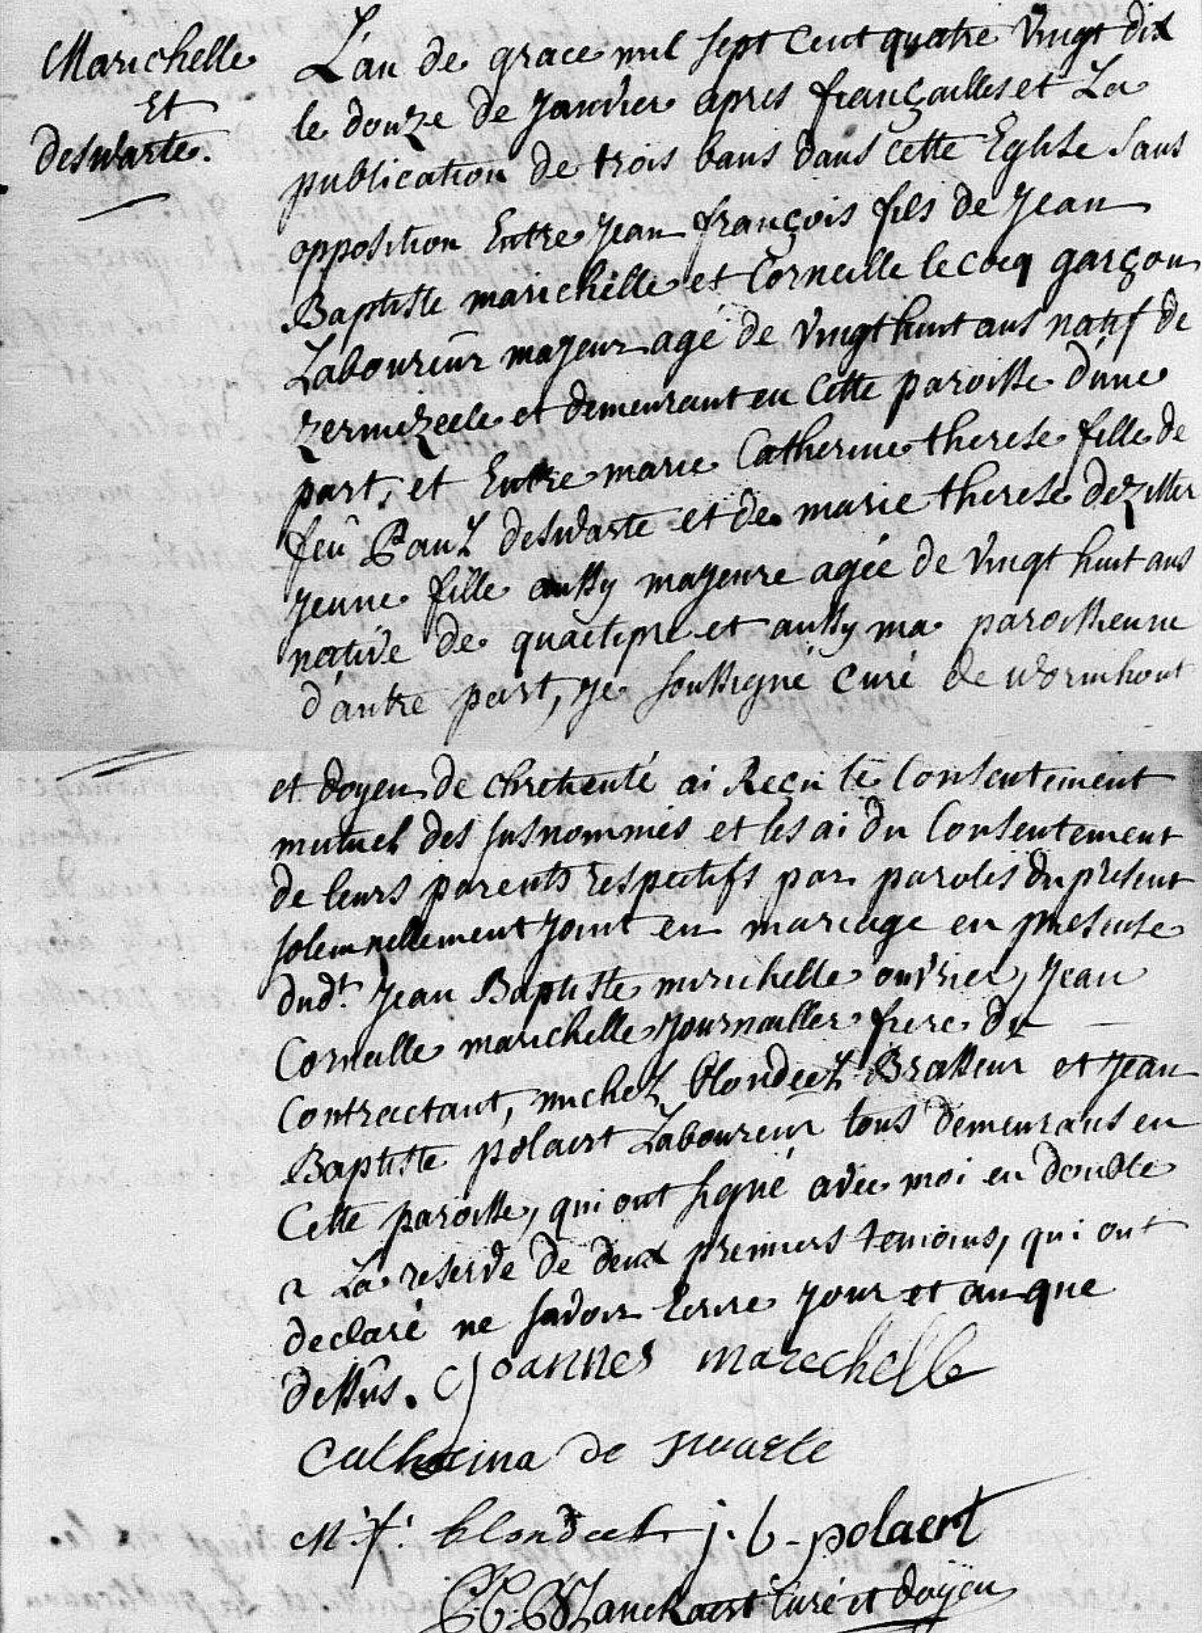 Marichelle
Et
deswarte.
L'an de grace mil sept Cent quatre Vingt dix
le douze de Janvier apres fiançailles et La
publication de trois bans dans cette Eglise sans
opposition Entre Jean françois fils de Jean
Baptiste marichelle et Corneille le cocq garçon
Laboureur majeur agé de Vingt huit ans natif de
zermezeele et demeurant en Cette paroisse d'une
part, et Entre marie Catherine therese fille de
feu Paul deswarte et de marie therese dezitter
jeune fille aussy majeure agée de Vingt huit ans
native de quaetipre et aussy ma paroissienne
d'autre part, je soussigné curé de wormhout
et doyen de chretienté ai Reçu le Consentement
mutuel des susnommés et les ai du Consentement
de leurs parents respectifs par paroles du présent
solemnellement joint en mariage en presense
dudt. Jean Baptiste marichelle ouvrier, Jean
Corneille marichelle journallier frere du
Contractant, michel blondeel Brasseur et Jean
Baptiste polaert Laboureur tous demeurans en
Cette paroisse, qui ont signé avec moi en double
a La reserve de deux premiers temoins, qui ont
declaré ne savoir Ecrire jour et an que
dessus. Joannes marechelle
Catharina de swarte
M. f. blondeel j. b. polaert
Curé et doyen